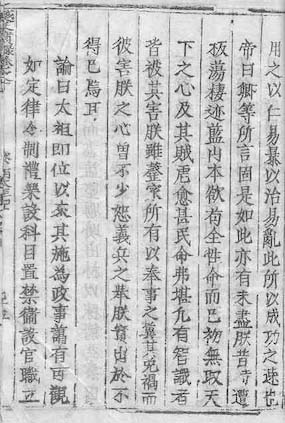 用之以仁易暴以治易亂此所以成功之速也
帝曰卿等所言固是如此亦有未盡朕昔寺遭
板蕩棲迹藍内本欲苟全性命而已初無取天
下之心及其賊虐愈甚民命弗堪允有智識者
皆被其害朕雖罄家所有以奉事之冀其免禍而
彼害朕之心曾不少恕義兵之舉朕實出於不
得已焉耳
論曰太祖即位以來其施為政事藹有可觀
如定律令制禮樂設科目置禁衛設官職立